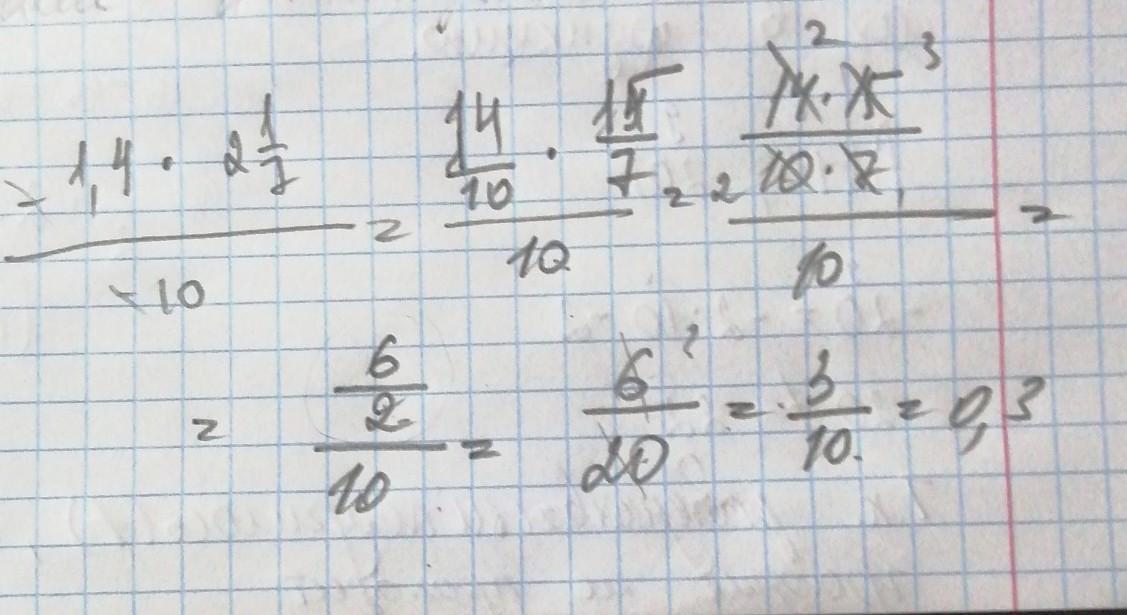 -1,4 · 2 1/7 / -10 = 14/10 · 15/7 / 10 = 14 · 15 / 10 · 7 / 10 =
= 6/2 / 10 = 6/20 = 3/10 = 0,3